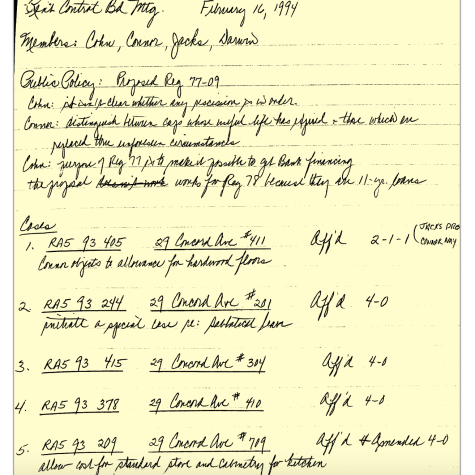 Rent Control Bd Mtg. February 16, 1994
Members: Cohn, Connor, Jacks, Darwin
Public Policy: Proposed Reg 77-09
Cohn: it isn't clear whether any recission is in order.
Connor: distinguish between caps whose useful life has expired & those which are
replaced thru unforeseen circumstances
Cohn: purpose of Reg 77 is to make it possible to get Bank financing
the proposal works for Reg 78 because they are 11-yr. loans
Cases
1. RAS 93 405 29 Concord Ave #411 Aff'd 2-1-1 (JACKS
CONNOR NAY
Connor objects to allowance for hardwood floors
2. RAS 93 244 29 Concord Ave #201 Aff'd 4-0
initiate a special case re: sabbatical leave
3. RAS 93 415 29 Concord Ave # 304 Aff'd 4-0
4. RAS 93 378 29 Concord Ave # 410 Aff'd 4-0
5. RAS 93 209 29 Concord Ave # 709 Aff'd & Amended 4-0
allow cost for standard stove and cabinetry for kitchen